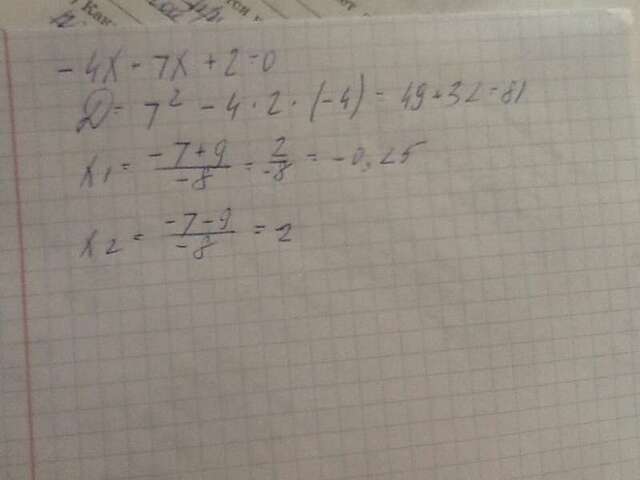 ) Как
-4x - 7x + 2 = 0
D = 7² - 4 · 2 · (-4) = 49 + 32 = 81
x₁ = \frac{-7+9}{-8} = \frac{2}{-8} = -0,25
x₂ = \frac{-7-9}{-8} = 2